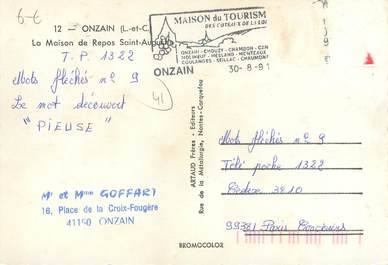 6-6
12 — ONZAIN (L.-et-C.)
La Maison de Repos Saint-Augustin
T.P. 1322
Mots fléchés n° 9
Le mot découvert
"PIEUSE"
41
Mr et Mme GOFFART
16, Place de la Croix-Fougère
41150 ONZAIN
MAISON du TOURISM
DES COTEAUX DE LA LOI
ONZAIN - CHOUZY - CHAMBON - CON
MOLINEUF - MESLAND - MONTEAUX
COULANGES - SEILLAC - CHAUMONT
ONZAIN 30-8-91
ARTAUD Frères - Editeurs
Rue de la Métallurgie, Nantes-Carquefou
BROMOCOLOR
Mots fléchés n° 9
Télé poche 1322
Cedex 3810
99381 Paris Concours